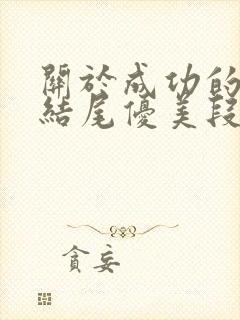 關於成功的
結尾優美段
貪妄